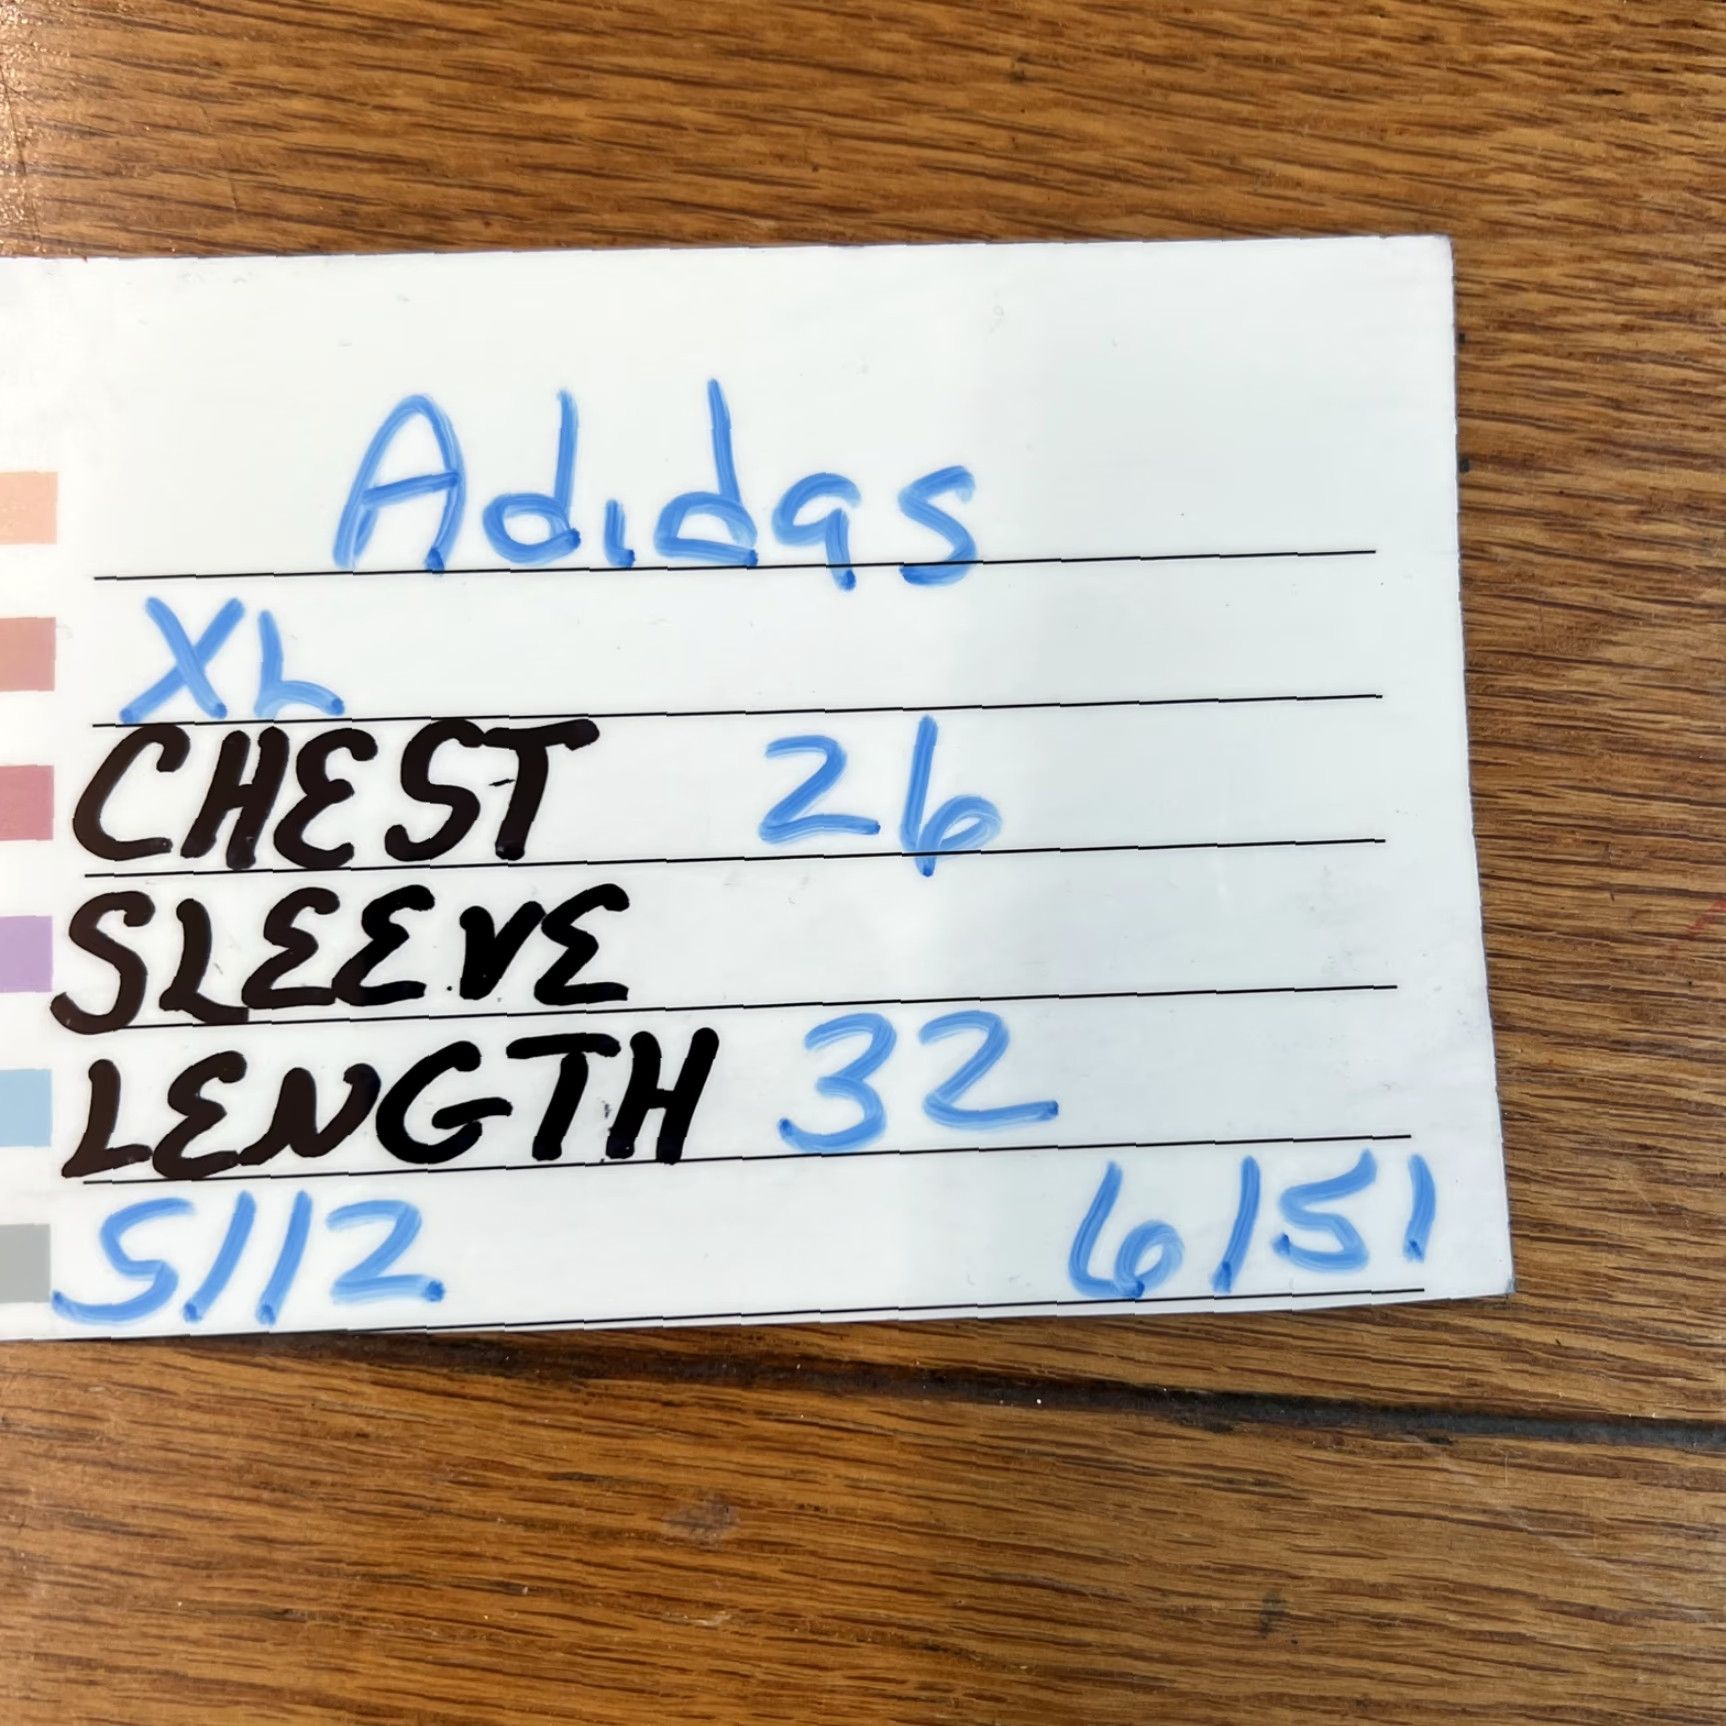 Adidas
XL
CHEST 26
SLEEVE
LENGTH 32
5112 6151